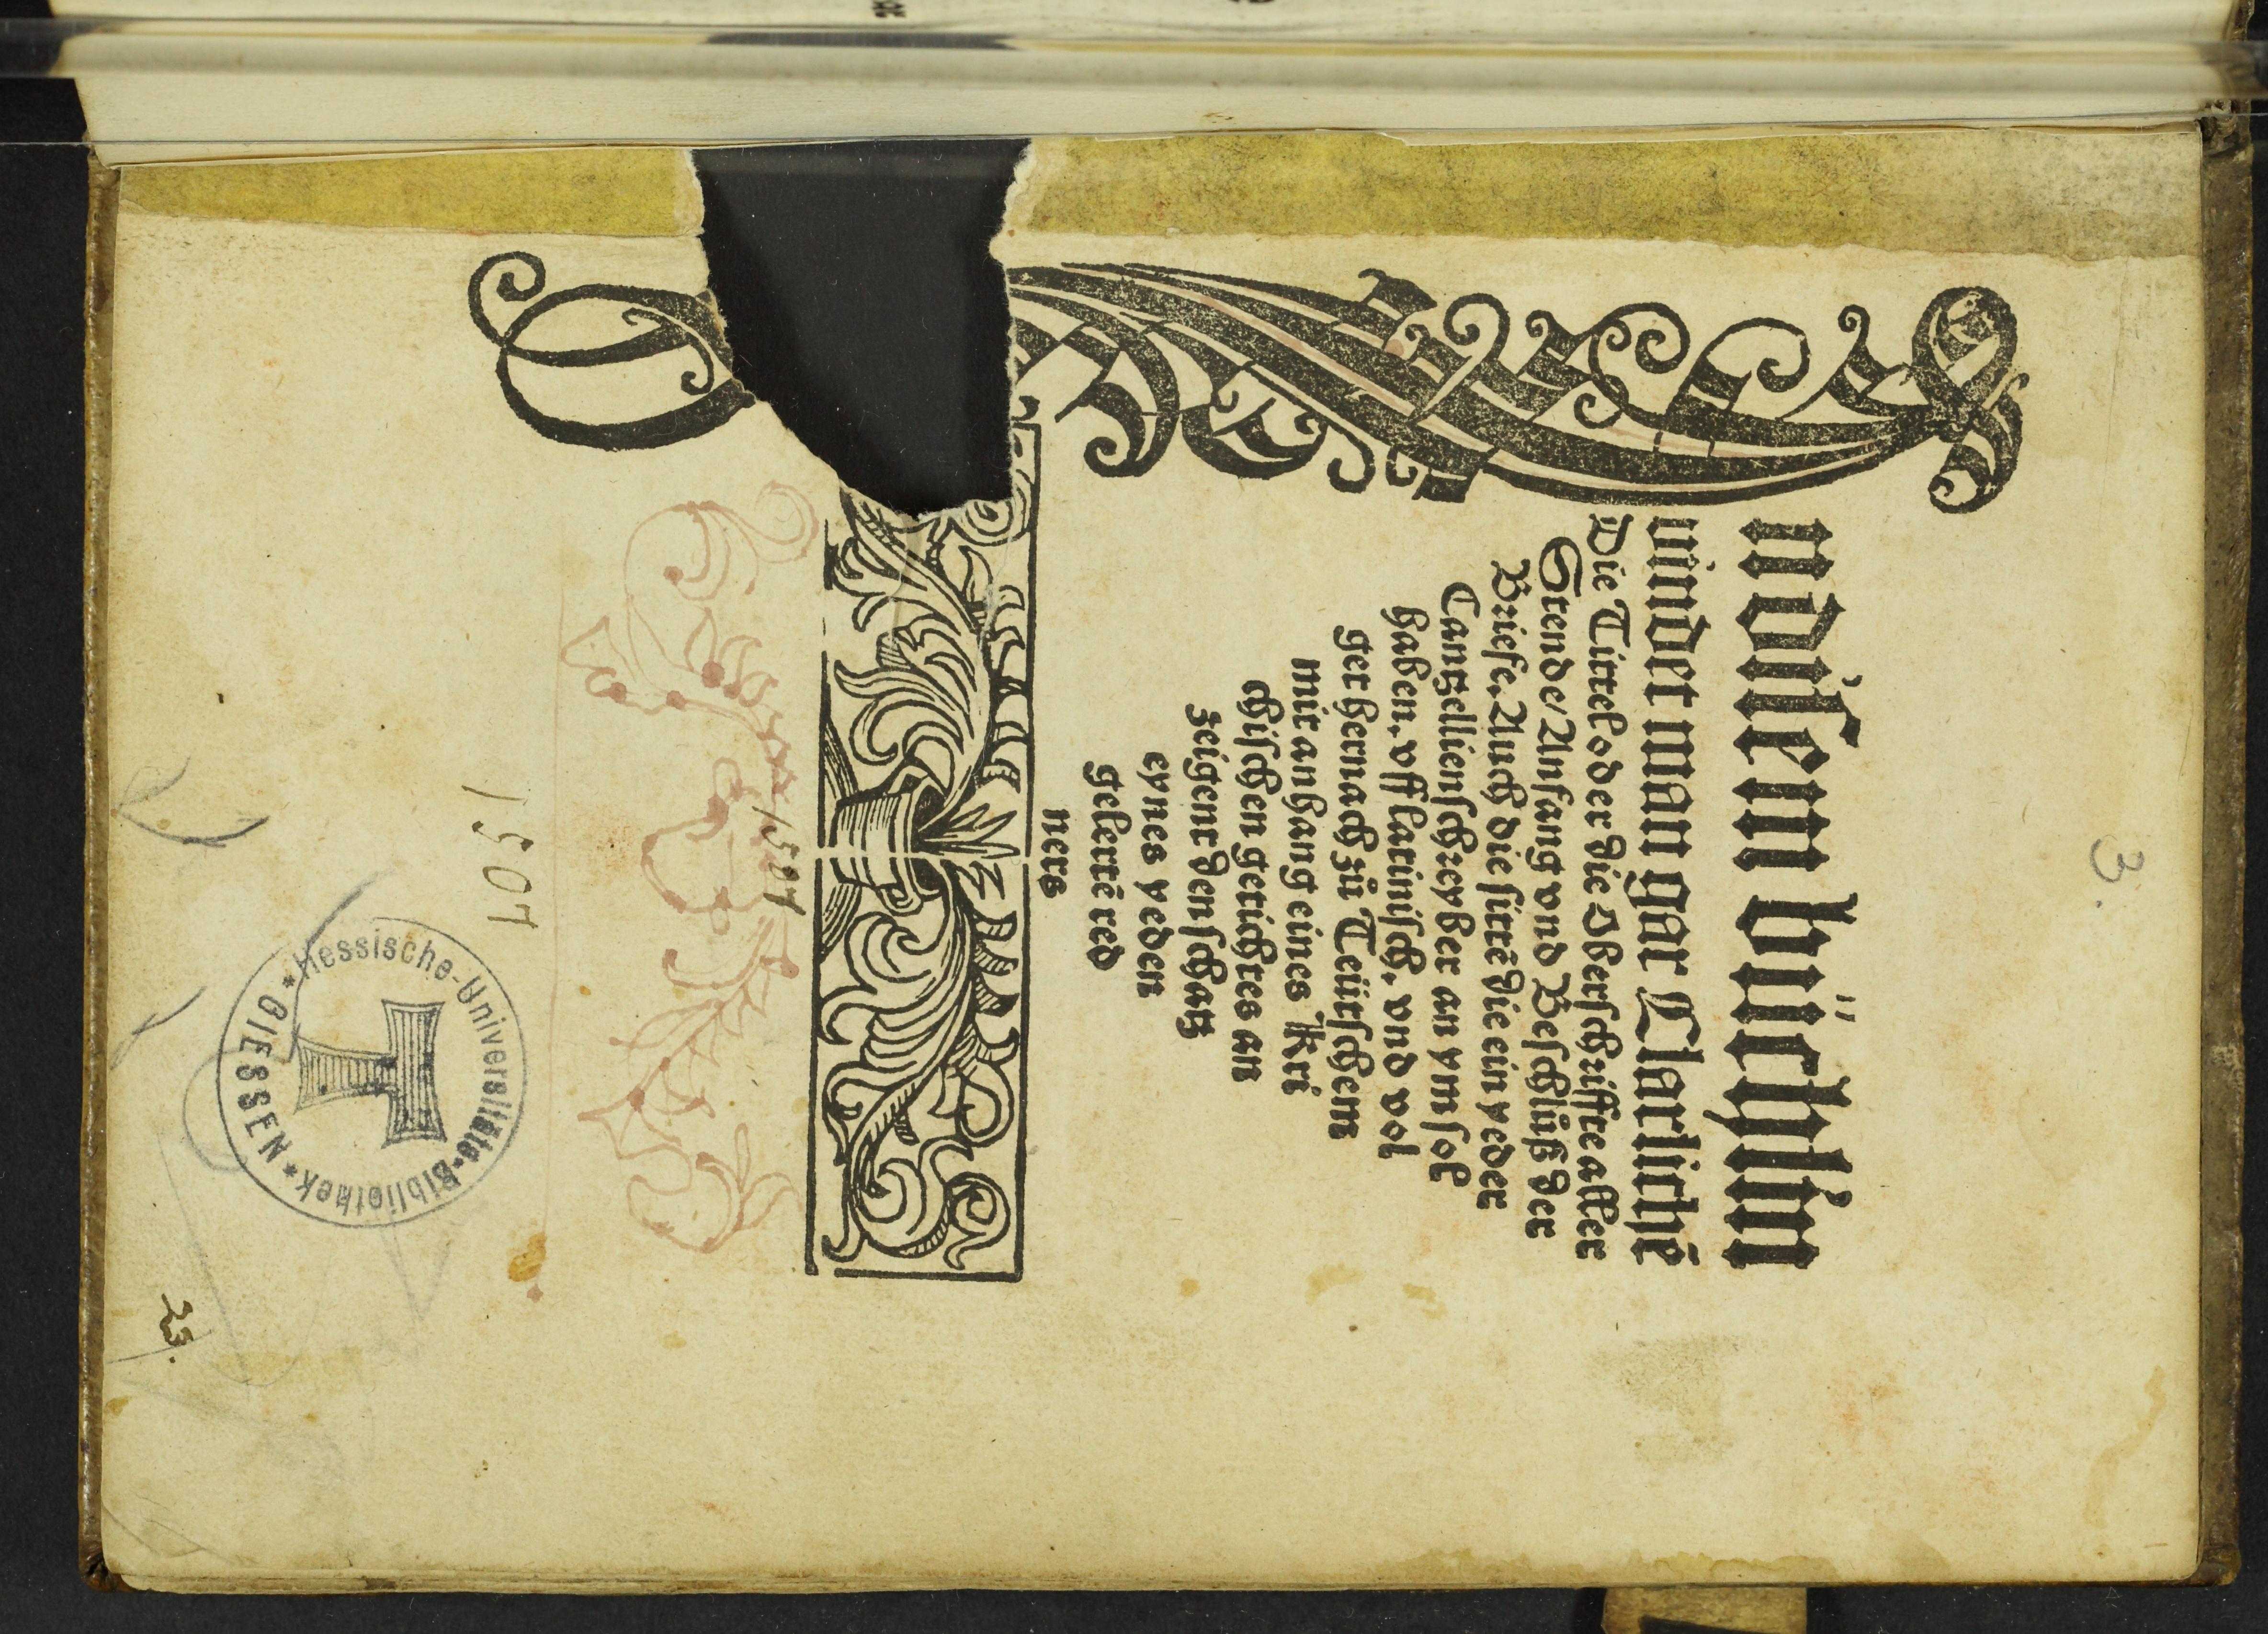 3.
In disem büchlin
vindet man gar Clarlichē
Die Tittel oder die Vberschriffte aller
Stende/Anfang vnd Beschlüß der
Briefe. Auch die sittē die ein yeder
Cantzelliensch͛eyber an ym sol
haben. vff latinisch. vnd vol
get hernach zů Teütschem
mit anhang eines Kri
chischen gerichtes an
zeigent den schatz
eynes yeden
gelertē red
ners
1507
1507
Hessische-Universitäts-Bibliothek
* GIESSEN *